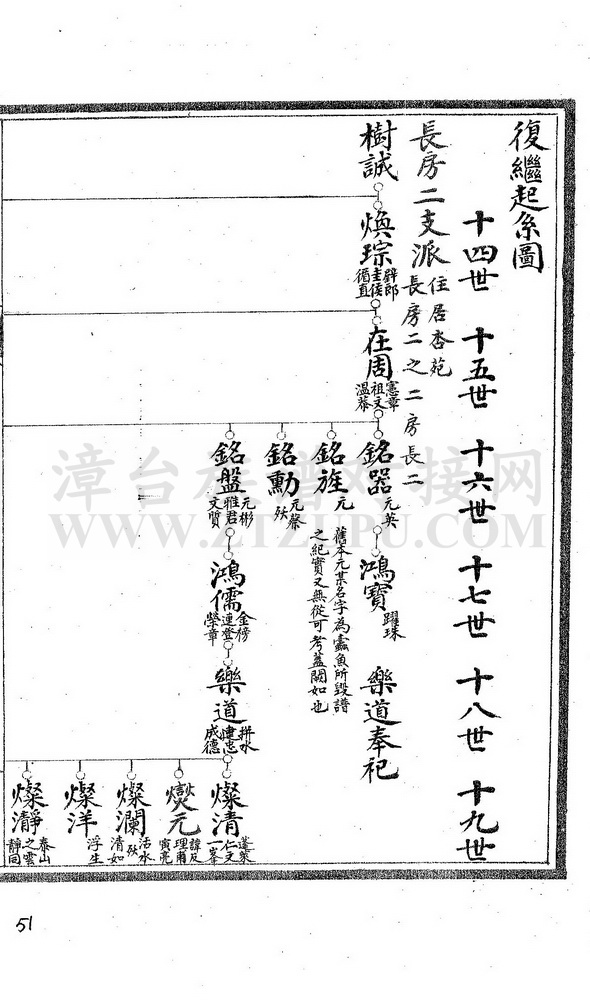 復繼起系圖
十四世 十五世 十六世 十七世 十八世 十九世
長房二支派
住居杏苑
長房二之二房長二
樹誠
煥琮
辟郎
圭侯
循直
在周
憲章
祖文
溫恭
銘器
元英
鴻寶
躍珠
樂道奉祀
銘旌
元
舊本元某名字為蠹魚所毀譜
之紀實又無從可考蓋闕如也
銘勳
元蔡
殀
銘盤
元彬
雅君
文質
鴻儒
金榜
連登
榮章
樂道
拼水
建忠
成德
燦清
蓬萊
仁文
一峯
燦元
諱反
理甫
寅亮
燦瀾
活水
殀
清如
燦洋
浮生
燦瀞
泰山
之雲
靜同
漳台族谱对接网
WWW.ZTZUPU.COM
51